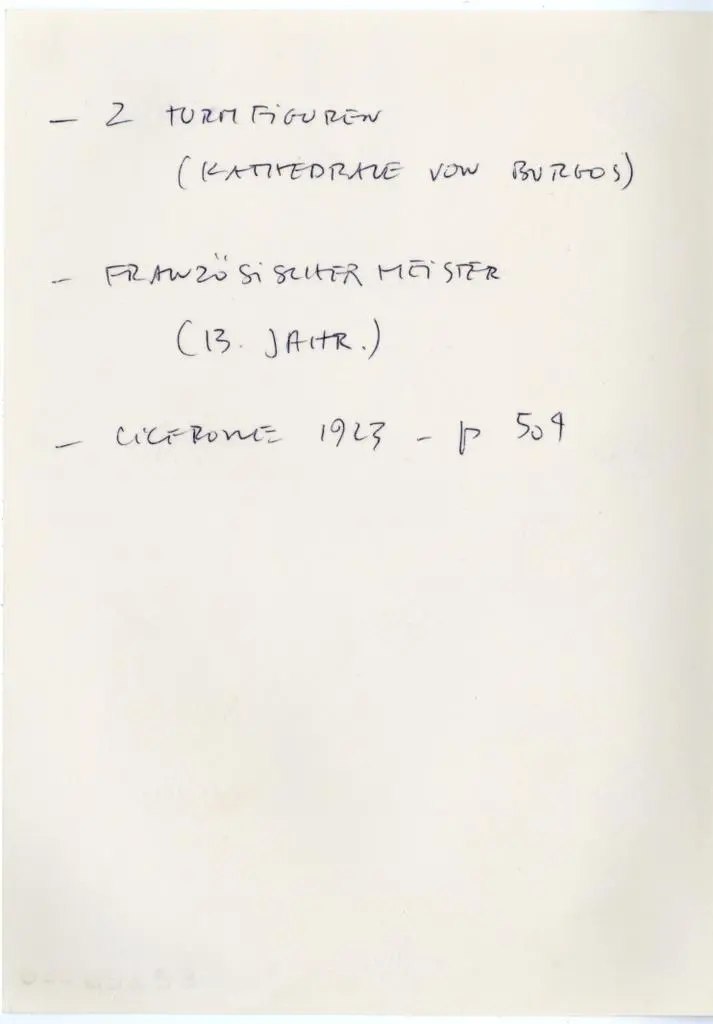 – 2 TURMFIGUREN
(KATHEDRALE VON BURGOS)
– FRANZÖSISCHER MEISTER
(13. JAHR.)
– CICERONE 1923 – p 509